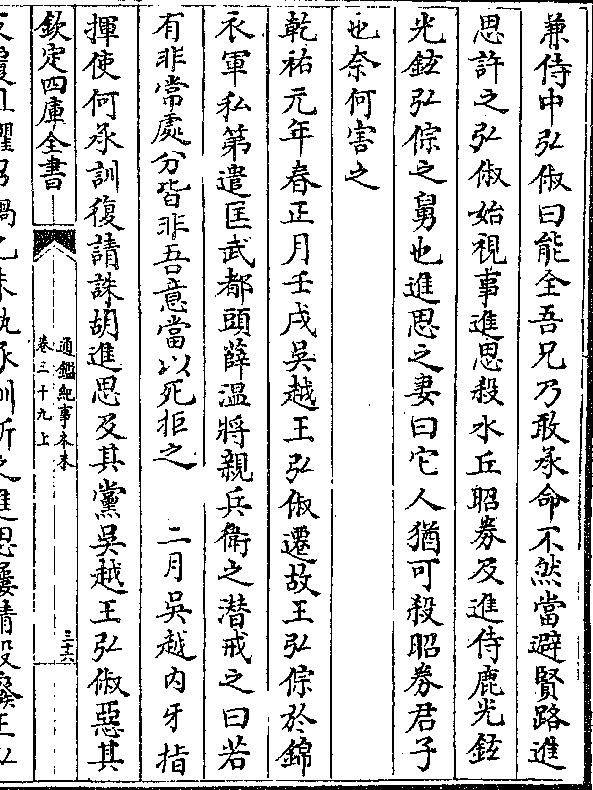 兼侍中弘俶曰能全吾兄乃敢承命不然當避賢路進
思許之弘俶始視事進思殺水丘昭券及進侍鹿光鉉
光鉉弘倧之舅也進思之妻曰它人猶可殺昭券君子
也奈何害之
乾祐元年春正月壬戌吳越王弘俶遷故王弘倧於錦
衣軍私第遣匡武都頭薛溫將親兵衛之潛戒之曰若
有非常處分皆非吾意當以死拒之　二月吳越內牙指
揮使何承訓復請誅胡進思及其黨吳越王弘俶惡其
欽定四庫全書
通鑑紀事本末
卷三十九上
三十六
反覆且懼召禍乙未執承訓斬之進思屢請殺廢王弘